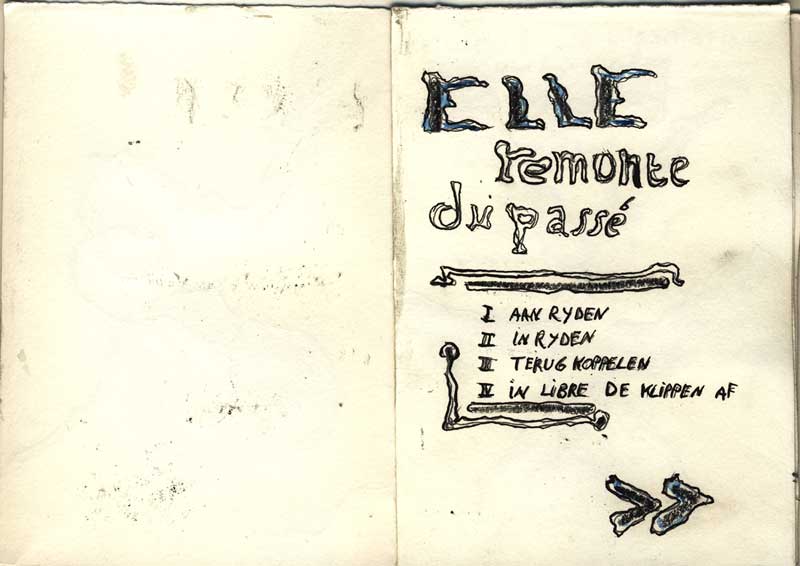 ELLE
remonte
du passé
I AAN RYDEN
II IN RYDEN
III TERUG KOPPELEN
IV IN LIBRE DE KLIPPEN AF